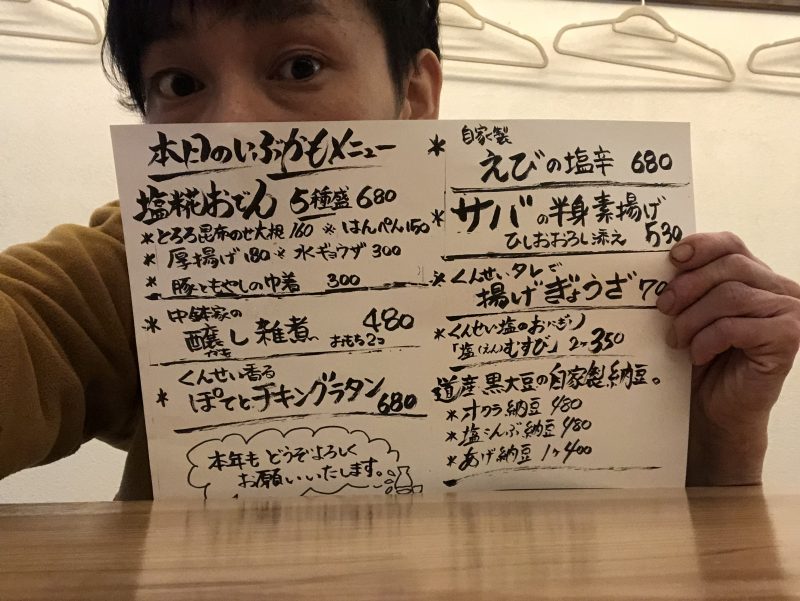 本日のいぶかもメニュー
塩糀おでん 5種盛 680
*とろろ昆布のせ大根 160 *はんぺん 150
*厚揚げ 180 *水ギョウザ 300
*豚ともやしの巾着 300
*中鉢家の 480
醸し雑煮 おもち2コ
*くんせい香る
ぽてとチキングラタン 680
本年もどうぞよろしく
お願いいたします。
*自家製
えびの塩辛 680
*サバの半身素揚げ
ひしおおろし添え 530
*くんせいタレで
揚げぎょうざ 70
*くんせい塩のおにぎり
「塩(えん)むすび」2ケ 350
道産黒大豆の自家製納豆。
*オクラ納豆 480
*塩こんぶ納豆 480
*あげ納豆 1ケ 400